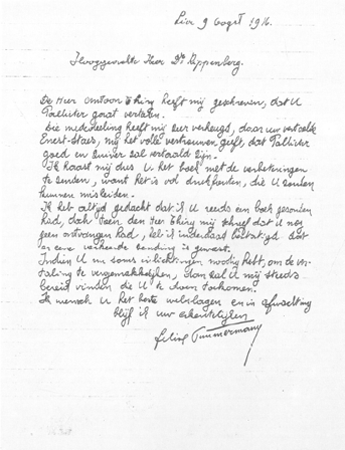 Lier 9 Oogst 1916.
Hooggeachte Heer Dr Kippenberg.
De Heer Antoon Thiry heeft mij geschreven, dat U
Pallieter gaat vertalen.
Die mededeling heeft mij zeer verheugd, daar uw vertaalde
mij het volle vertrouwen geeft, dat Pallieter
goed en zuiver zal vertaald zijn.
Ik haast mij dus U het boek met de verbeteringen
te zenden, want het is vol drukfouten, die U zouden
kunnen misleiden.
Ik heb altijd gedacht dat U reeds een boek gezonden
had, doch toen den Heer Thiry mij schreef dat U nog
geen ontvangen had, heb ik inderdaad dat
er eene verkeerde zending is geweest.
Indien U nu soms inlichtingen noodig hebt, om de ver-
taling te vergemakkelijken, dan zal U mij steeds
bereid vinden die U te doen toekomen.
Ik wensch U het beste welslagen en in afwachting
blijf ik uw erkentelijken
Felix Timmermans